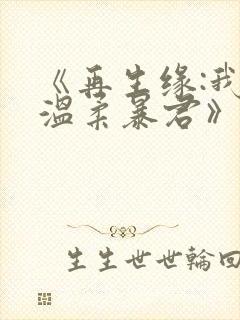 《再生缘:我
温柔暴君》
生生世世輪回